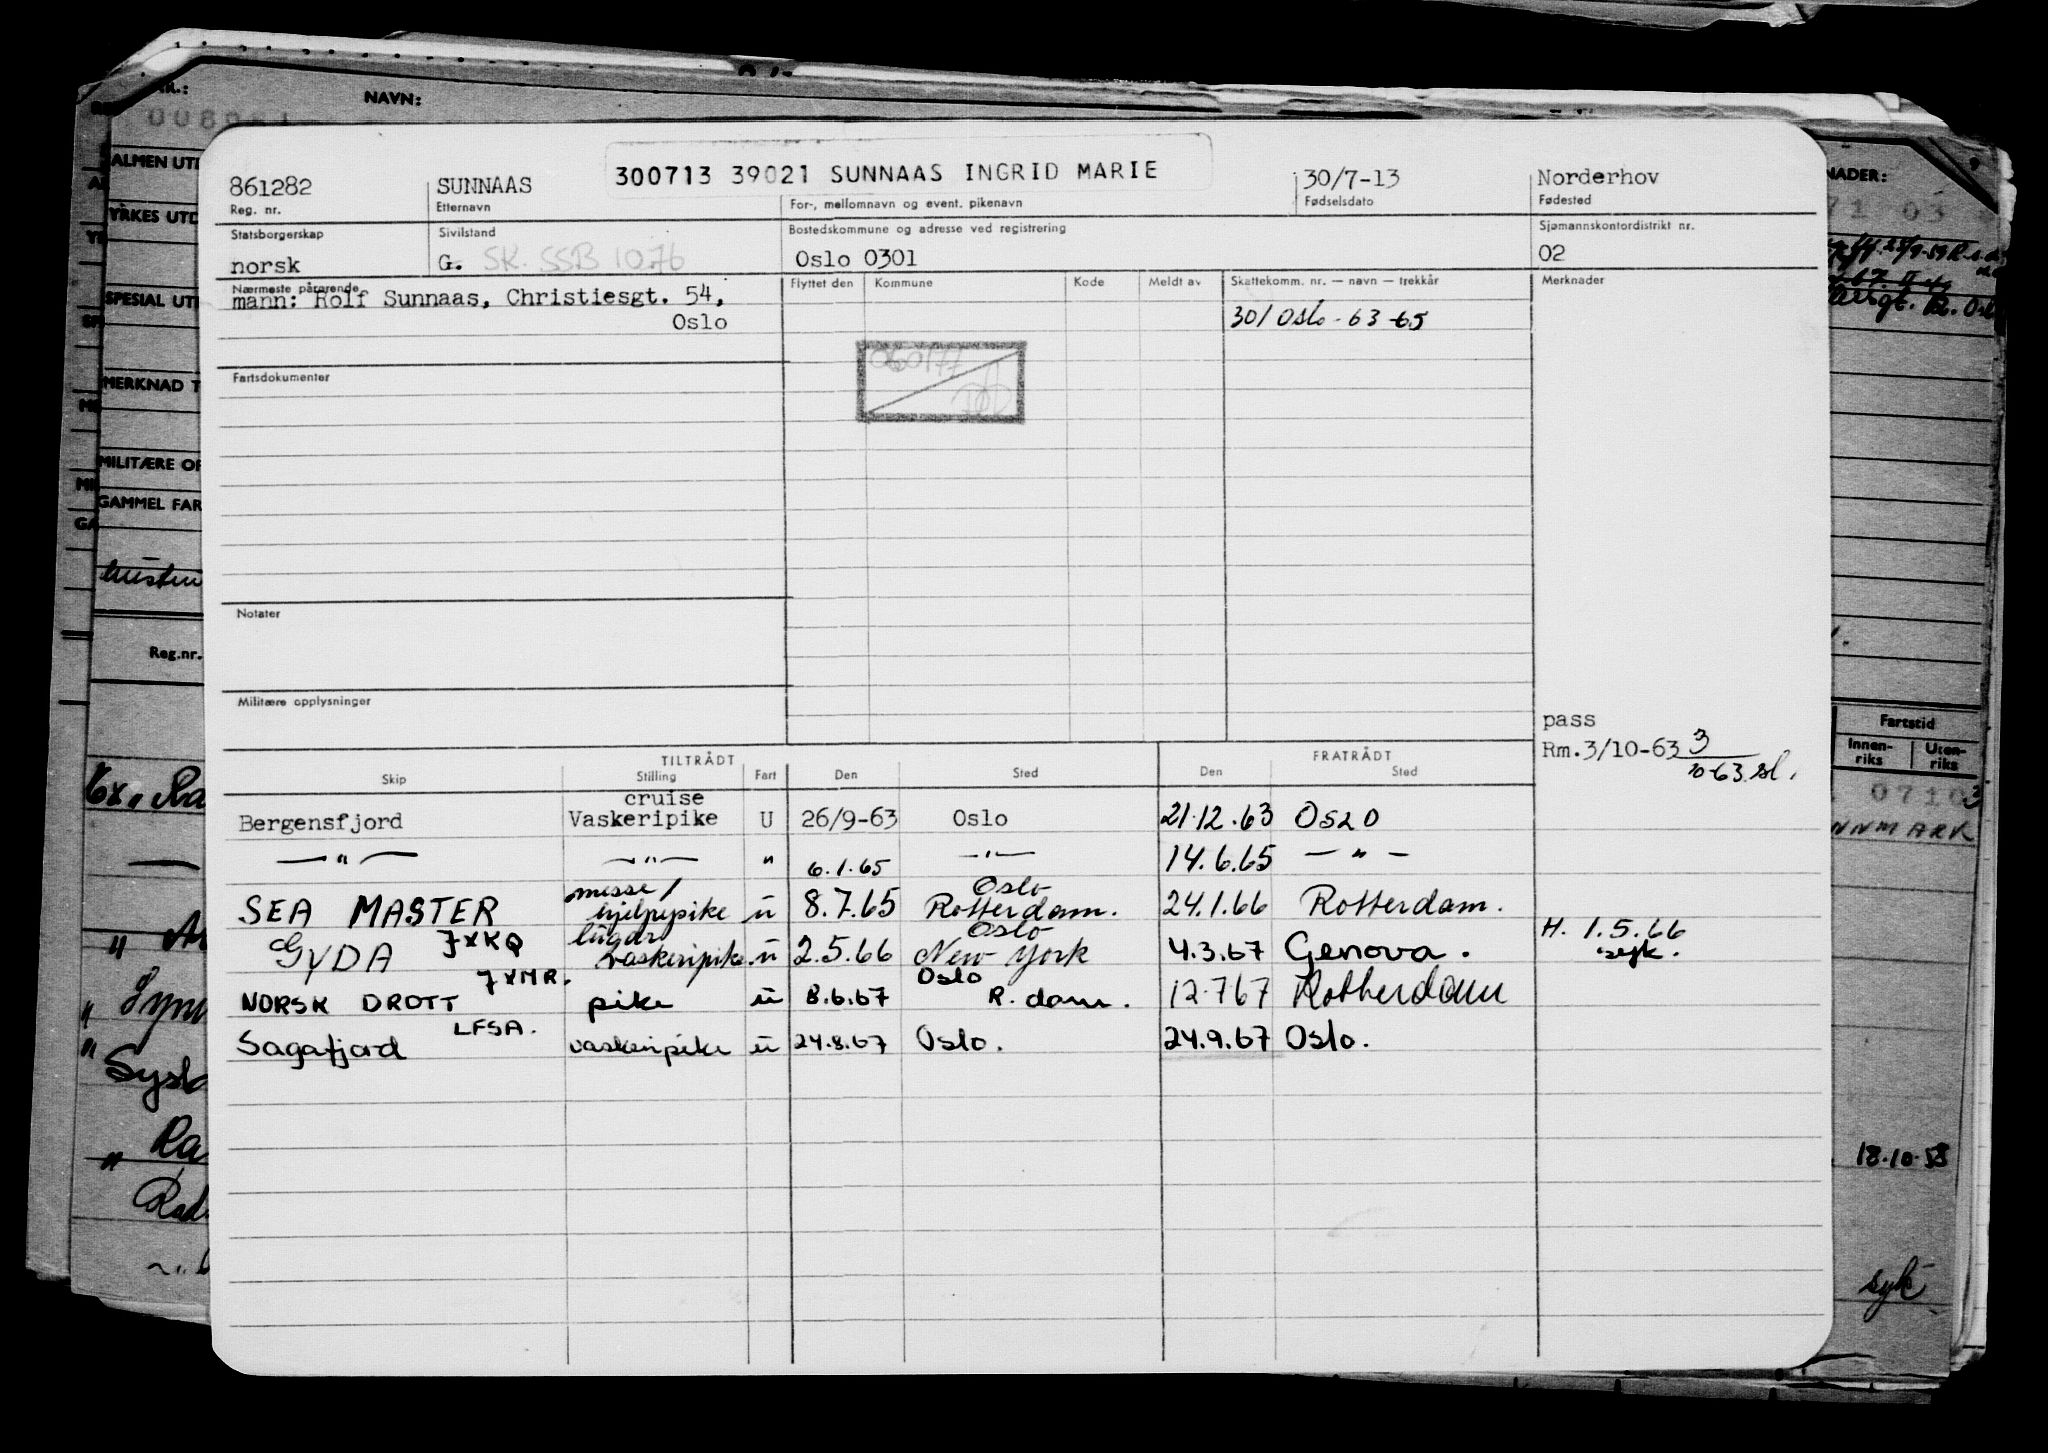 NAVN:
300713 39021 SUNNAAS INGRID MARIE
861282 SUNNAAS 30/7-13 Norderhov
Reg. nr. Etternavn For-, mellomnavn og event. pikenavn Fødselsdato Fødested
Statsborgerskap Sivilstand Bostedskommune og adresse ved registrering Sjømannskontordistrikt nr.
norsk G. SK. SSB 1076 Oslo 0301 02
Nærmeste pårørende Flyttet den Kommune Kode Meldt av Skattekomm. nr. — navn — trekkår Merknader
mann: Rolf Sunnaas, Christiesgt. 54,
Oslo 301 Oslo - 63 - 65
060177
Fartsdokumenter
Notater
Militære opplysninger
pass
Rm. 3/10-63 3/10-63 sl.
TILTRÅDT FRATRÅDT
Skip Stilling Fart Den Sted Den Sted
cruise
Bergensfjord Vaskeripike U 26/9-63 Oslo 21.12.63 OSLO
— " — — " — " 6.1.65 — " — 14.6.65 — " —
messe/ Oslo
SEA MASTER hjelpepike u 8.7.65 Rotterdam. 24.1.66 Rotterdam.
lugar Oslo H. 1.5.66
GYDA JXKQ vaskeripike u 2.5.66 New York 4.3.67 Genova. syk.
JXMR. Oslo
NORSK DROTT pike u 8.6.67 R. dam. 12.7.67 Rotterdam
LFSA.
Sagafjord vaskeripike u 24.8.67 Oslo. 24.9.67 Oslo.
ALMEN UTD
YRKES UTD
SPESIAL UT
MERKNAD T
MILITÆRE OP
GAMMEL FAR
Reg.nr.
NADER:
71 03
Fartstid
Innen-riks Uten-riks
0710
NNMARK
18.10.58
syk